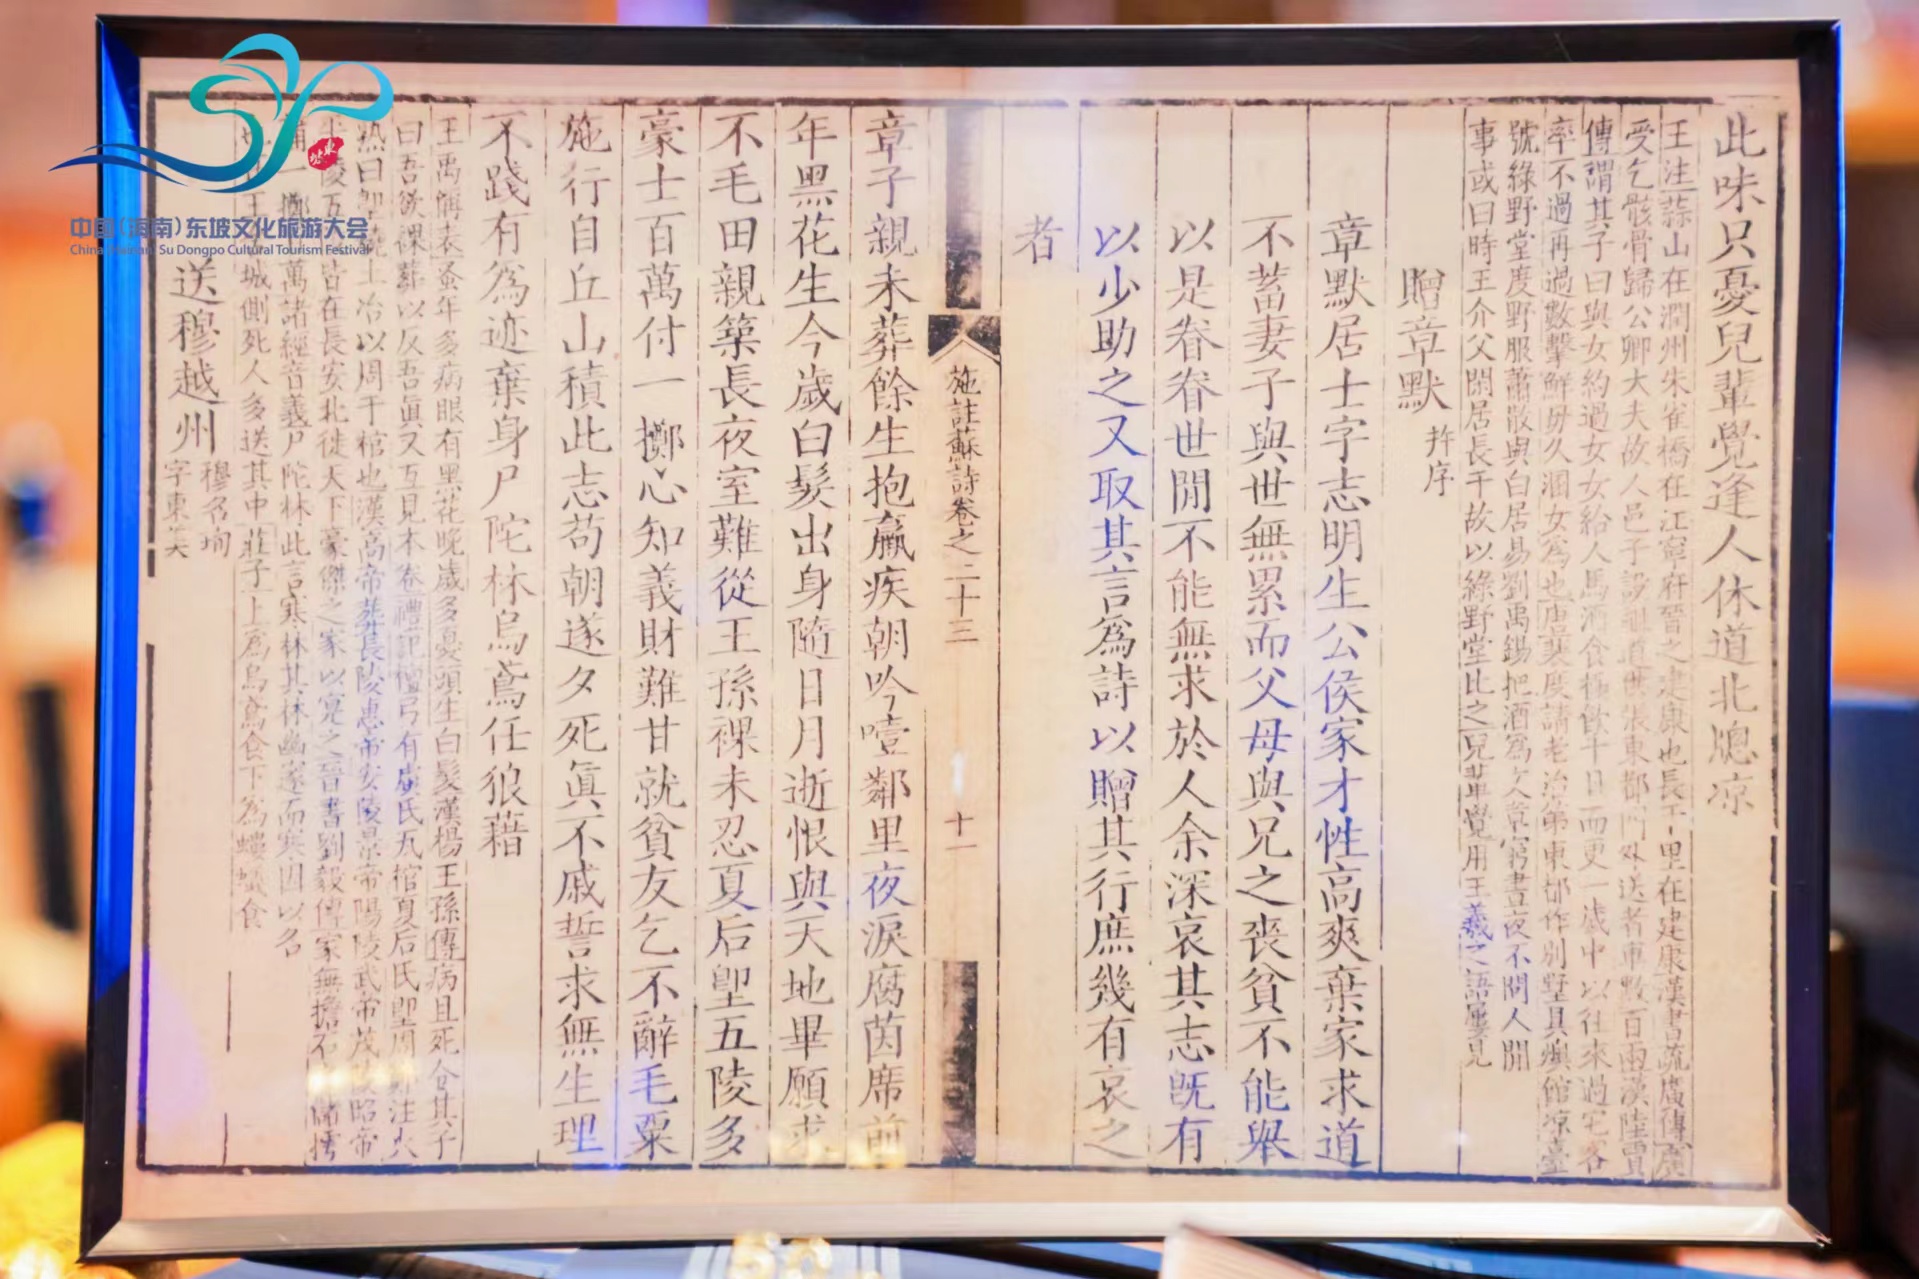 中国（海南）东坡文化旅游大会
China (Hainan) Su Dongpo Cultural Tourism Festival
此味只憂兒輩覺逢人休道北窻凉
王注蒜山在潤州朱雀橋在江寧府晉之建康也長干里在建康漢書疏廣傳廣
受乞骸骨歸公卿大夫故人邑子設祖道供張東都門外送者車數百兩漢陸賈
傳謂其子曰與女約過女女給人馬酒食極飲十日而更一歲中以往來過它客
率不過再過數擊鮮毋久溷女爲也唐裴度請老治第東都作别墅具燠館凉臺
號綠野堂度野服蕭散與白居易劉禹錫把酒窮晝夜不問人間
事或曰時王介父閑居長干故以綠野堂比之兒輩覺用王羲之語屢見
贈章默 并序
章默居士字志明生公侯家才性高爽棄家求道
不蓄妻子與世無累而父母與兄之喪貧不能舉
以是眷眷世間不能無求於人余深哀其志旣有
以少助之又取其言爲詩以贈其行庶幾有哀之
者
施註蘇詩卷之二十三 十一
章子親未葬餘生抱羸疾朝吟噎鄰里夜淚腐茵席前
年黑花生今歲白髮出身隨日月逝恨與天地畢願求
不毛田親築長夜室難從王孫裸未忍夏后堲五陵多
豪士百萬付一擲心知義財難甘就貧友乞不辭毛粟
施行自丘山積此志苟朝遂夕死眞不戚誓求無生理
不踐有爲迹棄身尸陀林烏鳶任狼藉
王禹偁表蚤年多病眼有黑花晚歲多憂頭生白髮漢楊王孫傳病且死令其子
曰吾欲裸葬以反吾眞又互見本卷禮記檀弓有虞氏瓦棺夏后氏堲周注火
熟曰堲燒土冶以周于棺也漢高帝葬長陵惠帝安陵景帝陽陵武帝茂陵昭帝
平陵五陵皆在長安北徙天下豪傑之家以實之晉書劉毅傳家無擔石之儲摴
蒱一擲百萬諸經音義尸陀林此言寒林其林幽邃而寒因以名
也在王舍城側死人多送其中莊子上爲烏鳶食下爲螻蟻食
送穆越州 穆名珣字東美